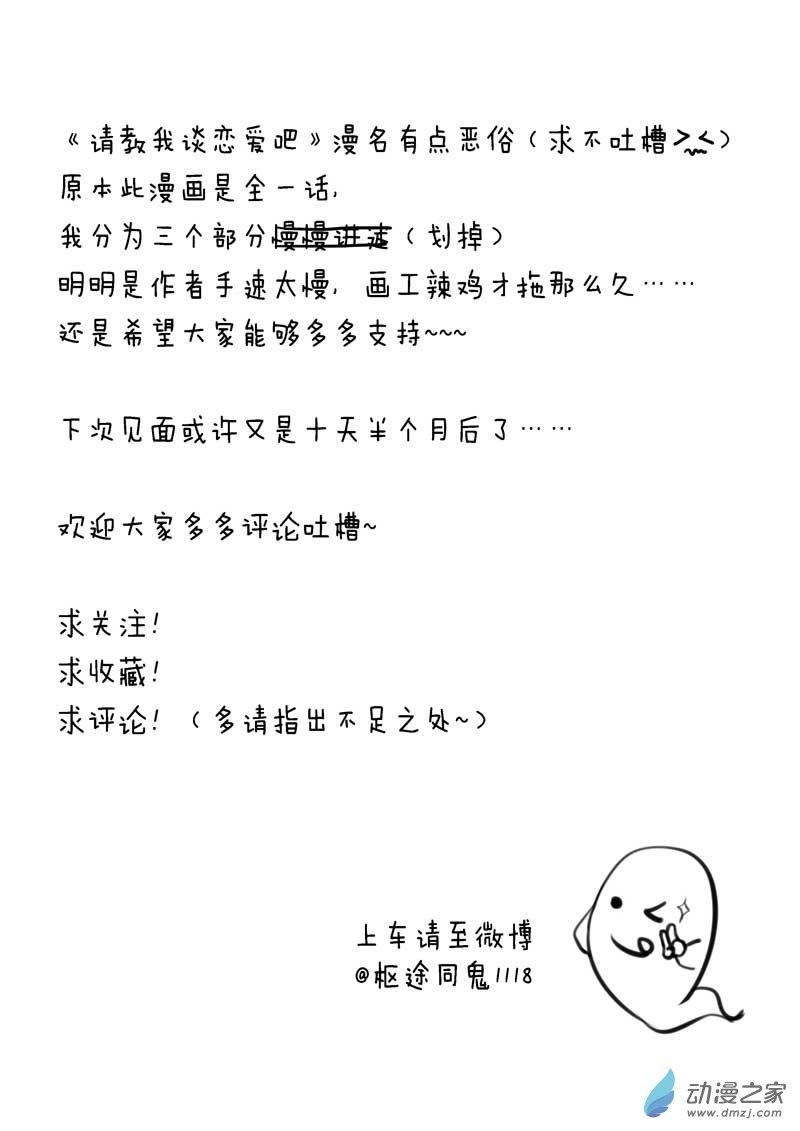 《请教我谈恋爱吧》漫名有点恶俗（求不吐槽><）
原本此漫画是全一话，
我分为三个部分慢慢进（划掉）
明明是作者手速太慢，画工辣鸡才拖那么久……
还是希望大家能够多多支持~~~
下次见面或许又是十天半个月后了……
欢迎大家多多评论吐槽~
求关注！
求收藏！
求评论！（多请指出不足之处~）
上车请至微博
@枢途同鬼1118
动漫之家
www.dmzj.com